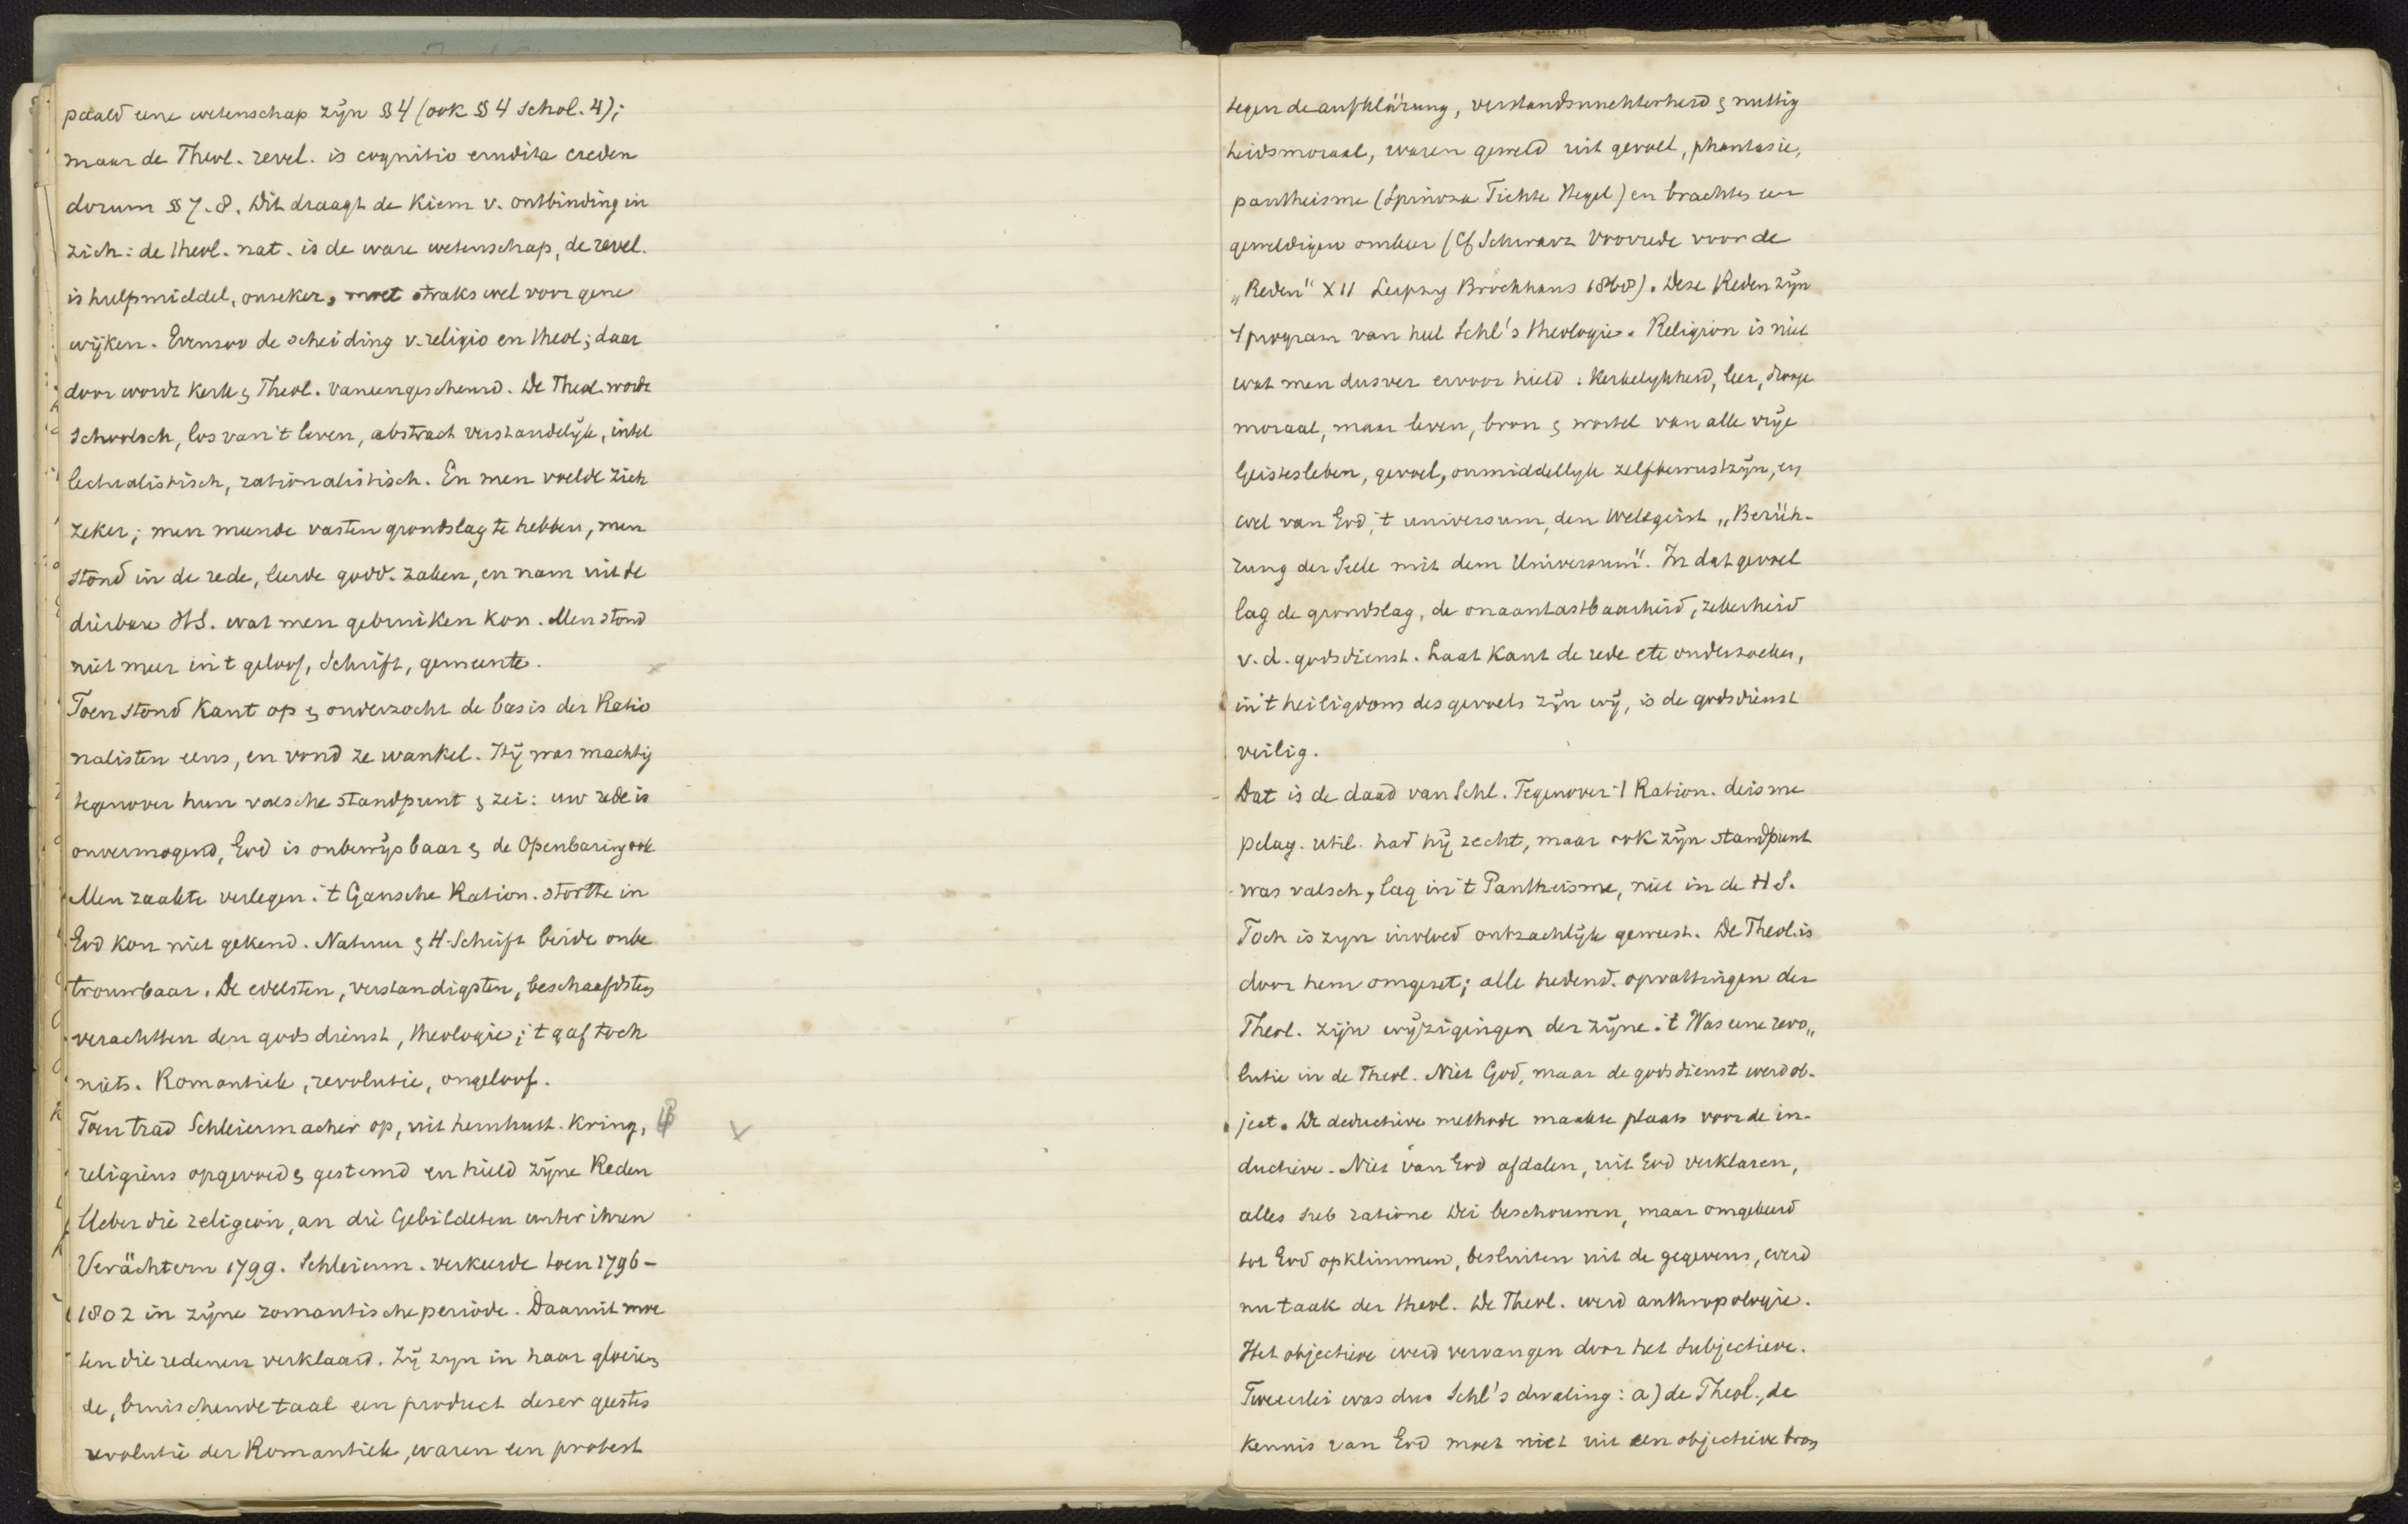 paald eene wetenschap zijn §§ 4 (ook §§ 4 Schol. 4);
maar de Theol. revel. is cognitio erudita creden
dorum §§ 7. 8. Dit draagt de Kiem v. ontbinding in
zich: de theol. nat. is de ware wetenschap, de revel.
is hulpmiddel, onzeker, moet straks wel voor gene
wijken. Evenzoo de scheiding v. religio en theol; daar
door wordt Kerk & Theol. vaneengescheurd. De Theol. wordt
schoolsch, los van 't leven, abstract verstandelijk, intel
lectualistisch, rationalistisch. En men voelde zich
zeker; men meende vasten grondslag te hebben, men
stond in de rede, leerde godd. zaken, en nam uit de
dierbare H S. wat men gebruiken kon. Men stond
niet meer in 't geloof, Schrift, gemeente.
Toen stond Kant op & onderzocht de basis der Ratio
nalisten eens, en vond ze wankel. Hij was machtig
tegenover hun valsche standpunt & zei: uw rede is
onvermogend, God is onbewijsbaar & de Openbaring ook
Men raakte verlegen. 't Gansche Ration. stortte in
God kon niet gekend. Natuur & H. Schrift beide onbe
trouwbaar. De edelsten, verstandigsten, beschaafdsten
verachtten den godsdienst, theologie; 't gaf toch
niets. Romantiek, revolutie, ongeloof.
Toen trad Schleiermacher op, uit hernhutt. Kring,
religieus opgevoed & gestemd en hield zijne Reden
Ueber die religion, an die Gebildeten unter ihren
Verächtern 1799. Schleierm. verkeerde toen 1796-
1802 in zijne romantische periode. Daaruit moe
ten die redenen verklaard. Zij zyn in haar gloeien
de, bruischende taal een product dezer geestes
revolutie der Romantiek, waren een protest
tegen de aufklärung, verstandsnuchterheid & nuttig
heidsmoraal, waren geweld uit gevoel, phantasie,
pantheisme (Spinoza Fichte Hegel) en brachten een
geweldigen omkeer (Cf Schwarz Voorrede voor de
„Reden" XII Leipzig Brockhaus 1868). Deze Reden zijn
't program van heel Schl's theologie. Religion is niet
wat men dusver ervoor hield: Kerkelykheid, leer, droge
moraal, maar leven, bron & wortel van alle vrije
Geistesleben, gevoel, onmiddellyk zelfbewustzijn, en
wel van God, 't universum, den Weltgeist „Berüh-
rung der Seele mit dem Universum". In dat gevoel
lag de grondslag, de onaantastbaarheid, zekerheid
v. d. godsdienst. Laat Kant de rede etc onderzoeken,
in 't heiligdom des gevoels zijn wij, is de godsdienst
veilig.
Dat is de daad van Schl. Tegenover 't Ration. deisme
pelag. util. had hij recht, maar ook zijn standpunt
was valsch, lag in 't Pantheisme, niet in de H S.
Toch is zyn invloed ontzachlijk geweest. De Theol. is
door hem omgezet; alle hedend. opvattingen der
Theol. zijn wijzigingen der zijne. 't Was eene revo„
lutie in de Theol. Niet God, maar de godsdienst werd ob-
ject. De deductieve methode maakte plaats voor de in-
ductieve. Niet van God afdalen, uit God verklaren,
alles sub ratione Dei beschouwen, maar omgekeerd
tot God opklimmen, besluiten uit de gegevens, werd
nu taak der theol. De Theol. werd anthropologie.
Het objectieve werd vervangen door het subjectieve.
Tweeerlei was dus Schl's dwaling: a) de Theol., de
Kennis van God moet niet uit een objectieve bron